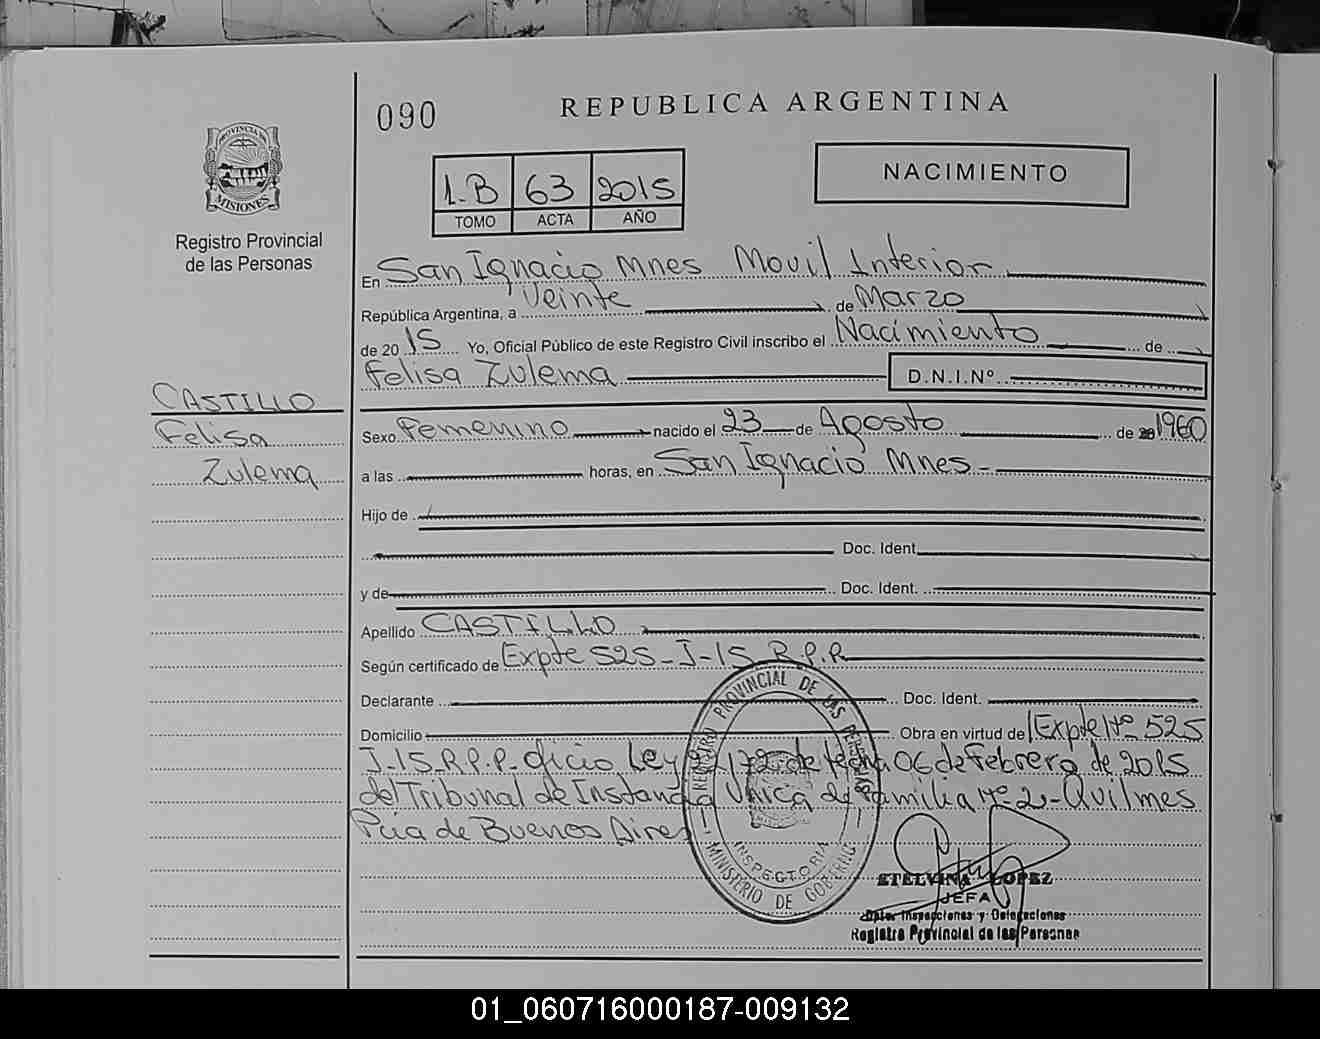 090
REPUBLICA ARGENTINA
PROVINCIA DE
MISIONES
Registro Provincial
de las Personas
1-B 63 2015
TOMO ACTA AÑO
NACIMIENTO
En San Ignacio Mnes Movil Interior
República Argentina, a Veinte de Marzo
de 2015 Yo, Oficial Público de este Registro Civil inscribo el Nacimiento de
Felisa Zulema D.N.I.Nº
CASTILLO
Felisa
Zulema
Sexo Femenino nacido el 23 de Agosto de 1960
a las horas, en San Ignacio Mnes -
Hijo de
Doc. Ident.
y de Doc. Ident.
Apellido CASTILLO
Según certificado de Expte 525-J-15 R.P.P
Declarante Doc. Ident.
Domicilio Obra en virtud de Expte Nº 525
J-15-R.P.P-Oficio Ley 172 de fecha 06 de Febrero de 2015
del Tribunal de Instancia Unica de Familia Nº 2-Quilmes
Pcia de Buenos Aires
REGISTRO PROVINCIAL DE LAS PERSONAS
INSPECTORIA
MINISTERIO DE GOBIERNO
ETELVINA LOPEZ
JEFA
Dpto. Inspecciones y Delegaciones
Registro Provincial de las Personas
01_060716000187-009132